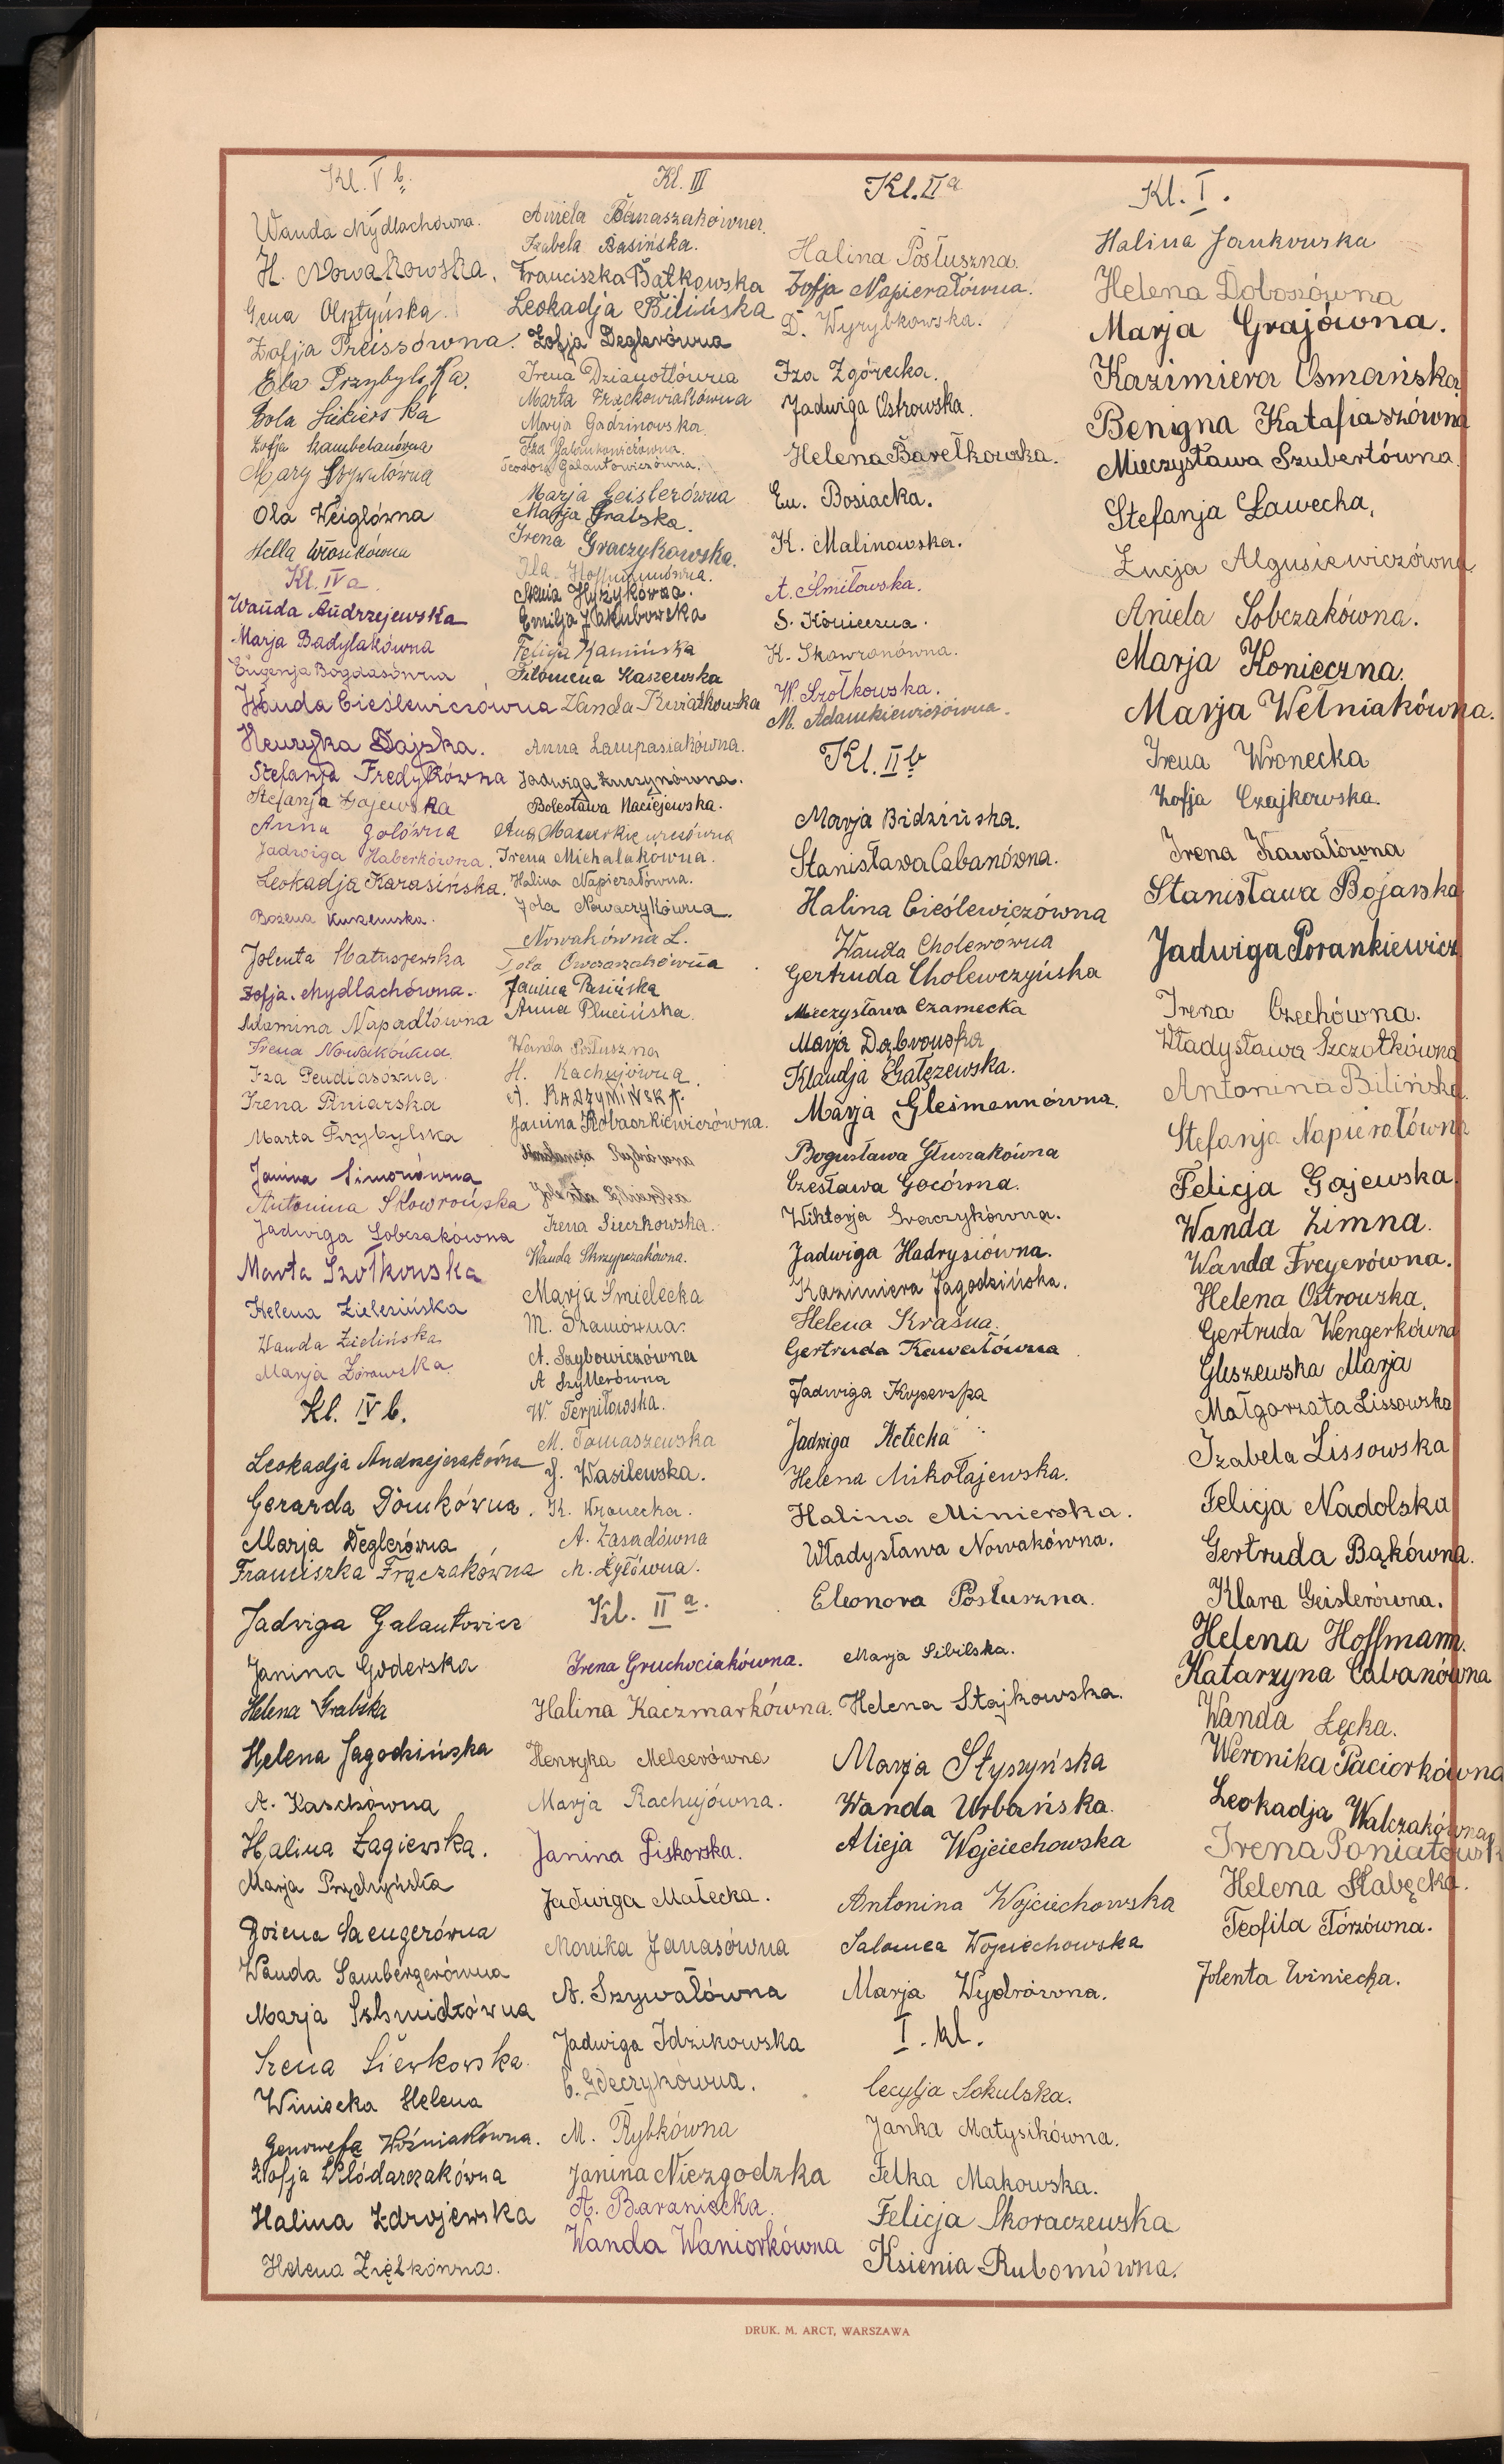 Kl. V b.
Wanda Mydlachówna.
H. Nowakowska.
Gena Olsztyńska.
Zofja Preissówna.
Ela Przybylska.
Zofja Szambelanówna
Mary Szywałówna
Ola Weiglówna
Hella Włosikówna
Kl. IV a.
Wanda Andrzejewska
Marja Badylakówna
Eugenja Bogdasówna
Wanda Cieślewiczówna
Henryka Dajska.
Stefanja Fredykówna
Stefanja Gajewska
Anna Golówna
Jadwiga Haberkówna.
Leokadja Karasińska.
Bożena Kurzewska.
Jolenta Matuszewska
Zofja Mydlachówna.
Adamina Napadłówna
Irena Nowakówna.
Iza Pendiasówna
Irena Piniarska
Marta Przybylska
Janina Simonówna
Antonina Skowrońska
Jadwiga Sobczakówna
Marta Szołkowska
Helena Zielezińska
Wanda Zielińska
Marja Żórawska.
Kl. IV b.
Leokadja Andrzejczakówna
Gerarda Domkówna.
Marja Deglerówna
Franciszka Frączakówna
Jadwiga Galantowicz
Janina Goderska
Helena Grabska
Helena Jagodzińska
A. Kaschówna
Halina Łagiewska.
Marja Prądzyńska
Bożena Saengerówna
Wanda Sambergerówna
Marja Schmidtówna
Irena Siewkowska.
Winiecka Helena
Genowefa Woźniakówna.
Zofja Włódarczakówna
Halina Zdrojewska
Helena Ziębkówna.
Kl. III
Aniela Banaszakówna.
Izabela Basińska.
Franciszka Bątkowska
Leokadja Bilińska
Zofja Deglerówna
Irena Dzianottówna
Marta Frąckowiakówna
Marja Gadzinowska
Iza Galantowiczówna.
Teodora Galantowiczówna.
Marja Geislerówna
Marja Gralska.
Irena Graczykowska.
Ila Hoffmanówna.
Stenia Hyżykówna.
Emilja Jakubowska
Felicja Kamińska
Filomena Kaszewska
Wanda Kwiatkowska
Anna Lampasiakówna.
Jadwiga Łuczynówna.
Bolesława Maciejewska.
Irena Michalakówna.
Halina Napierałówna.
Jola Nowaczykówna.
Nowakówna L.
Tola Owczarzakówna
Janina Pasińska
Anna Plucińska.
Wanda Posłuszna
H. Rachujówna.
A. RADZYMIŃSKA.
Janina Robaczkiewiczówna.
Irena Sieczkowska.
Wanda Skrzypczakówna.
Marja Śmielecka
M. Śramówna.
A. Szybowiczówna
A Szyllerówna
W. Terpiłowska.
M. Tomaszewska
J. Wasilewska.
K. Wronecka.
A. Zasadówna
M. Żyłówna.
Kl. II a.
Irena Gruchociakówna.
Halina Kaczmarkówna.
Henryka Melcerówna
Marja Rachujówna.
Janina Piskorska.
Jadwiga Małecka.
Monika Janasówna
A. Szywałówna
Jadwiga Idzikowska
C. Gdeczykówna.
M. Rybkówna
Janina Niezgodzka
A. Baraniecka.
Wanda Waniorkówna
Kl. II a
Halina Posłuszna.
Zofja Napierałówna.
D. Wyrybkowska.
Iza Zgórecka.
Jadwiga Ostrowska.
Helena Barełkowska.
Eu. Bosiacka.
K. Malinowska.
A. Śmiłowska.
S. Konieczna.
K. Skowronówna.
W. Szołkowska.
M. Adamkiewiczówna.
Kl. II b
Marja Bidzińska.
Stanisława Cabanówna.
Halina Cieślewiczówna
Wanda Cholewówna
Gertruda Cholewczyńska
Mieczysława Czarnecka
Marja Dąbrowska
Klaudja Gałęzewska.
Marja Glesmannówna.
Bogusława Głuszakówna
Czesława Gocówna.
Wiktorja Graczykówna.
Jadwiga Hadrysiówna.
Kazimiera Jagodzińska.
Helena Kraśna.
Gertruda Kawałówna
Jadwiga Koperska
Jadwiga Małecka
Helena Mikołajewska.
Halina Minierska.
Władysława Nowakówna.
Eleonora Posłuszna.
Marja Sibilska.
Helena Stajkowska.
Marja Słyszyńska
Wanda Urbańska.
Alicja Wojciechowska
Antonina Wojciechowska
Salomea Wojciechowska
Marja Wydrówna.
I. kl.
Cecylja Sokulska.
Janka Matysikówna.
Felka Makowska.
Felicja Skoraczewska
Ksienia Rubomówna.
Kl. I.
Halina Jankowska
Helena Doboszówna
Marja Grajówna.
Kazimiera Osmańska
Benigna Katafiaszówna
Mieczysława Szubertówna.
Stefanja Ławecka,
Łucja Algusiewiczówna
Aniela Sobczakówna.
Marja Konieczna.
Marja Wełniakówna.
Irena Wronecka
Zofja Czajkowska.
Irena Kawałówna
Stanisława Bojarska
Jadwiga Porankiewicz
Irena Czechówna.
Władysława Szczotkówna
Antonina Bilińska.
Stefanja Napierałówna
Felicja Gajewska.
Wanda Zimna.
Wanda Freyerówna.
Helena Ostrowska.
Gertruda Wengerkówna
Gliszewska Marja
Małgorzata Lissowska
Izabela Lissowska
Felicja Nadolska
Gertruda Bąkówna.
Klara Geislerówna.
Helena Hoffmann.
Katarzyna Cabanówna
Wanda Łęcka.
Weronika Paciorkówna
Leokadja Walczakówna
Irena Poniatowsk
Helena Słabęcka.
Teofila Tórzówna.
Jolenta Winiecka.
DRUK. M. ARCT, WARSZAWA